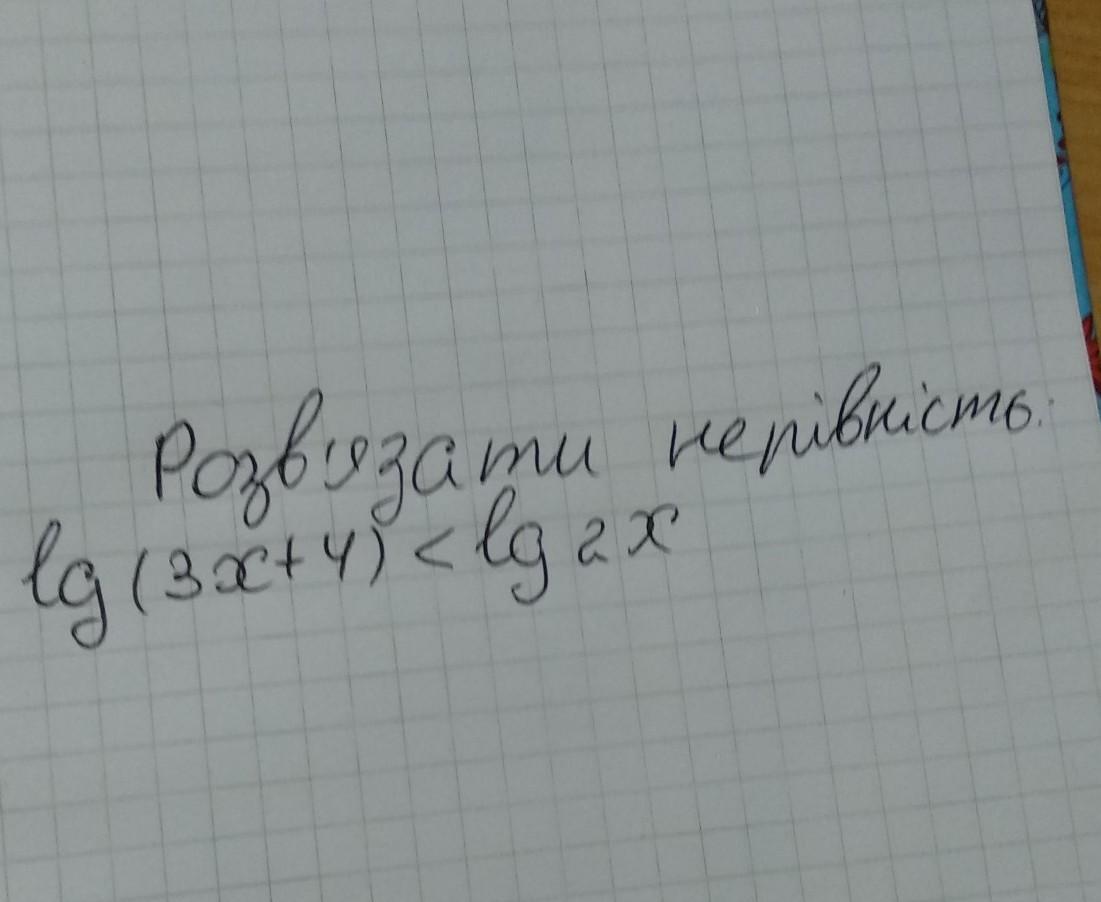 Розв'язати нерівність:
lg (3x+4) < lg 2x